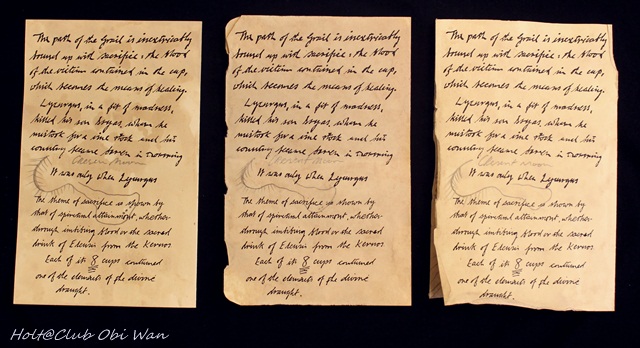 The path of the Grail is inextricably
bound up with sacrifice, the blood
of the victim contained in the cup,
which becomes the means of healing.
Lycurgus, in a fit of madness,
killed his son Dryas, whom he
mistook for a vine stock and his
country became barren in mourning
It was only when Lycurgus
The theme of sacrifice is shown by
that of spiritual attainment, whether
through imbibing blood or the sacred
drink of Eleusis from the Kernos
Each of its 8 cups contained
one of the elements of the divine
draught.
The path of the Grail is inextricably
bound up with sacrifice, the blood
of the victim contained in the cup,
which becomes the means of healing.
Lycurgus, in a fit of madness,
killed his son Dryas, whom he
mistook for a vine stock and his
country became barren in mourning
It was only when Lycurgus
The theme of sacrifice is shown by
that of spiritual attainment, whether
through imbibing blood or the sacred
drink of Eleusis from the Kernos
Each of its 8 cups contained
one of the elements of the divine
draught.
The path of the Grail is inextricably
bound up with sacrifice, the blood
of the victim contained in the cup,
which becomes the means of healing.
Lycurgus, in a fit of madness,
killed his son Dryas, whom he
mistook for a vine stock and his
country became barren in mourning
It was only when Lycurgus
The theme of sacrifice is shown by
that of spiritual attainment, whether
through imbibing blood or the sacred
drink of Eleusis from the Kernos
Each of its 8 cups contained
one of the elements of the divine
draught.
Holt@Club Obi Wan